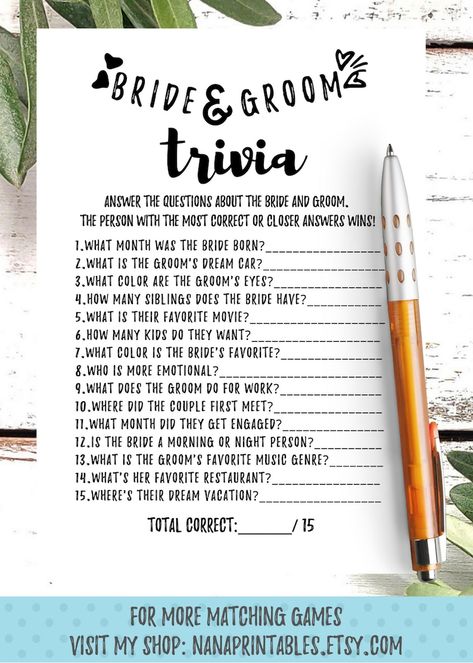 BRIDE & GROOM
trivia
ANSWER THE QUESTIONS ABOUT THE BRIDE AND GROOM.
THE PERSON WITH THE MOST CORRECT OR CLOSER ANSWERS WINS!
1.WHAT MONTH WAS THE BRIDE BORN?_______________
2.WHAT IS THE GROOM'S DREAM CAR?_______________
3.WHAT COLOR ARE THE GROOM'S EYES?_____________
4.HOW MANY SIBLINGS DOES THE BRIDE HAVE?_________
5.WHAT IS THEIR FAVORITE MOVIE?_________________
6.HOW MANY KIDS DO THEY WANT?_________________
7.WHAT COLOR IS THE BRIDE'S FAVORITE?____________
8.WHO IS MORE EMOTIONAL?____________________
9.WHAT DOES THE GROOM DO FOR WORK?____________
10.WHERE DID THE COUPLE FIRST MEET?_____________
11.WHAT MONTH DID THEY GET ENGAGED?____________
12.IS THE BRIDE A MORNING OR NIGHT PERSON?________
13.WHAT IS THE GROOM'S FAVORITE MUSIC GENRE?______
14.WHAT'S HER FAVORITE RESTAURANT?_____________
15.WHERE'S THEIR DREAM VACATION?_______________
TOTAL CORRECT:______/ 15
FOR MORE MATCHING GAMES
VISIT MY SHOP: NANAPRINTABLES.ETSY.COM